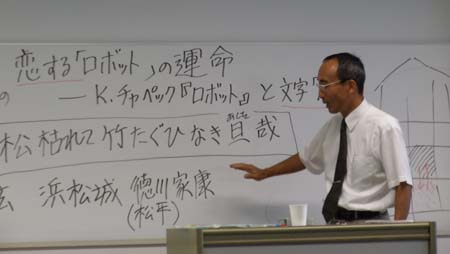 恋する「ロボット」の運命
の ― K.チャペック『ロボット』と文字
松枯れて竹たぐひなき旦哉
あした
浜松城 徳川家康
(松平)